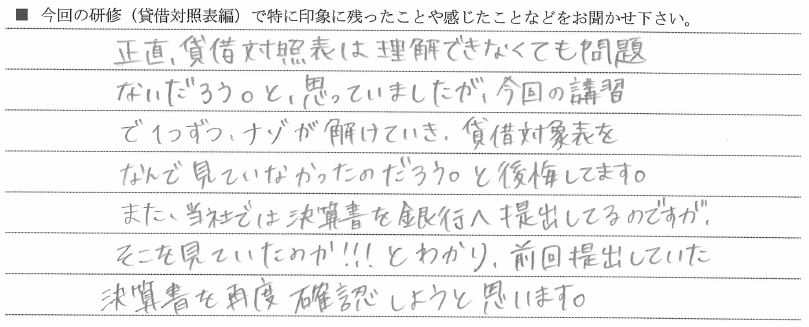 ■ 今回の研修（貸借対照表編）で特に印象に残ったことや感じたことなどをお聞かせ下さい。
正直、貸借対照表は理解できなくても問題
ないだろう。と、思っていましたが、今回の講習
で1つずつ、ナゾが解けていき、貸借対象表を
なんで見ていなかったのだろう。と後悔してます。
また、当社では決算書を銀行へ提出してるのですが、
そこを見ていたのか!!!とわかり、前回提出していた
決算書を再度確認しようと思います。